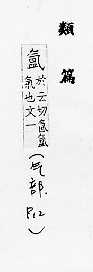 類篇
氳
於云切氤氳
氣也文一
(气部. P12)